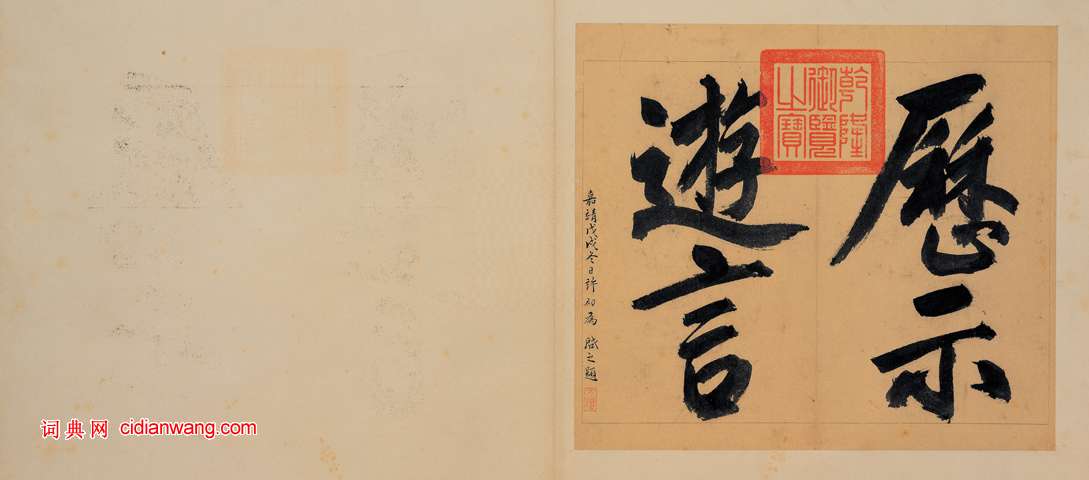 歷示
遊言
乾隆
御覽
之寶
嘉靖戊戌冬日許初為 賦之題
词典网 cidianwang.com